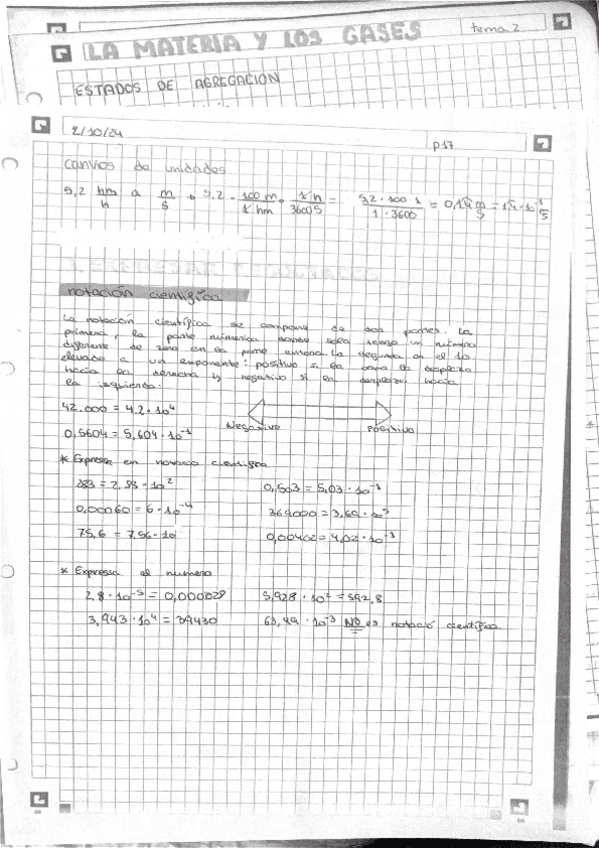 LA MATERIA Y LOS GASES
tema 2
ESTADOS DE AGREGACIÓN
2/10/24
p.17
canvios de unidades
5,2 hm/h a m/s → 5,2 · 100 m/1 hm · 1 h/3600 s = 5,2 · 100 · 1/1 · 3600 =
notación científica
La notación científica se compone de dos partes. La
primera, la parte numérica solo tengo un número
diferente de zero en la parte entera. La segunda es el 10
elevado a un exponente: positivo si la coma se desplaza
hacia la derecha y negativo si se desplaza hacia
la izquierda.
42.000 = 4,2 · 10⁴
Negativo
Positivo
0,5604 = 5,604 · 10⁻¹
* Expressa en notació científica
283 = 2,83 · 10²
0,503 = 5,03 · 10⁻¹
0,00060 = 6 · 10⁻⁴
369000 = 3,69 · 10⁵
75,6 = 7,56 · 10
0,00402 = 4,02 · 10⁻³
* Expressa el numero
2,8 · 10⁻⁵ = 0,000028
5,928 · 10² = 592,8
3,943 · 10⁴ = 39430
63,49 · 10⁻³ NO es notació científica